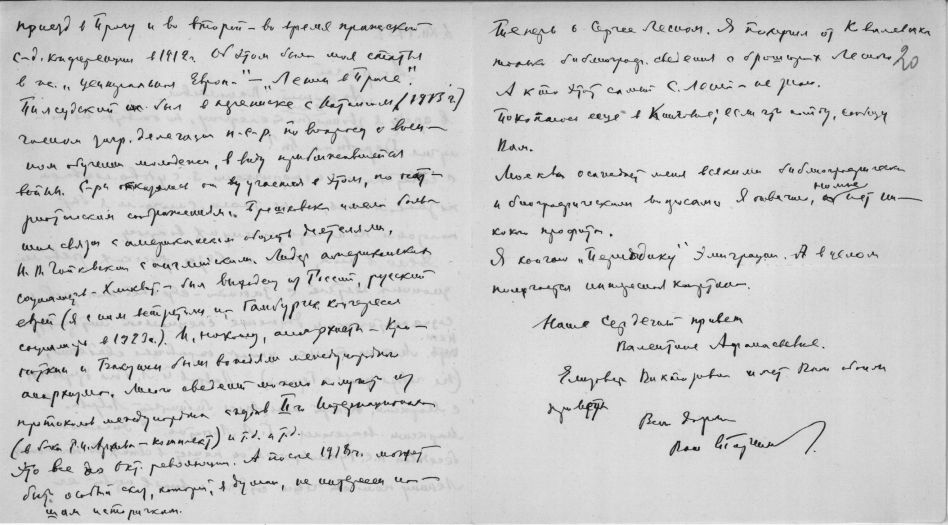 приезд в Прагу и во второй – во время пражской
с-д. конференции в 1912 г. Об этом была моя статья
в ж. "Центральная Европа" – "Ленин в Праге".
Пилсудский был в переписке с (1913 г.)
загр. делегации п. с-р. по вопросу о воен-
ном обучении молодежи, в виду приближавшейся
войны. С-ры отказались от участия в этом, по
соображениям. Брешковск. имела боль-
шие связи с американским обществ. деятелями,
Н. В. Чайковский с английскими. Лидер американских
социалистов – Хилквит – был выходец из России, русский
еврей (я с ним встретился на Гамбургск. конгрессе
социалистов в 1923 г.). И, наконец, анархисты – Кро-
поткин и Бакунин были вождями международного
анархизма. Много сведений можно получить из
протоколов международных съездов II-го Интернационала
(в б-ке Р. И. Архива – комплект) и т.д. и т.д.
Это все до Окт. революции. А после 1918 г. может
быть особый сказ, который, я думаю, не интересен на-
шим историкам.
Теперь о Сергее Лесном. Я получил от
только библиограф. сведения о брошурах Лесного
20
А кто этот самый С. Лесной – не знаю.
Покопаюсь еще в ; если что найду, сообщу
Вам.
Москва осаждает меня всякими библиографическими
и биографическими вопросами. Я отвечаю, но мне от этого ни-
какого профита.
Я кончаю "Периодику" Эмиграции. А в целом
получается интересная картина.
Наш сердечный привет
Валентине Афанасьевне.
Елизавета Викторовна шлет Вам обоим
приветы
Ваш
Ваш